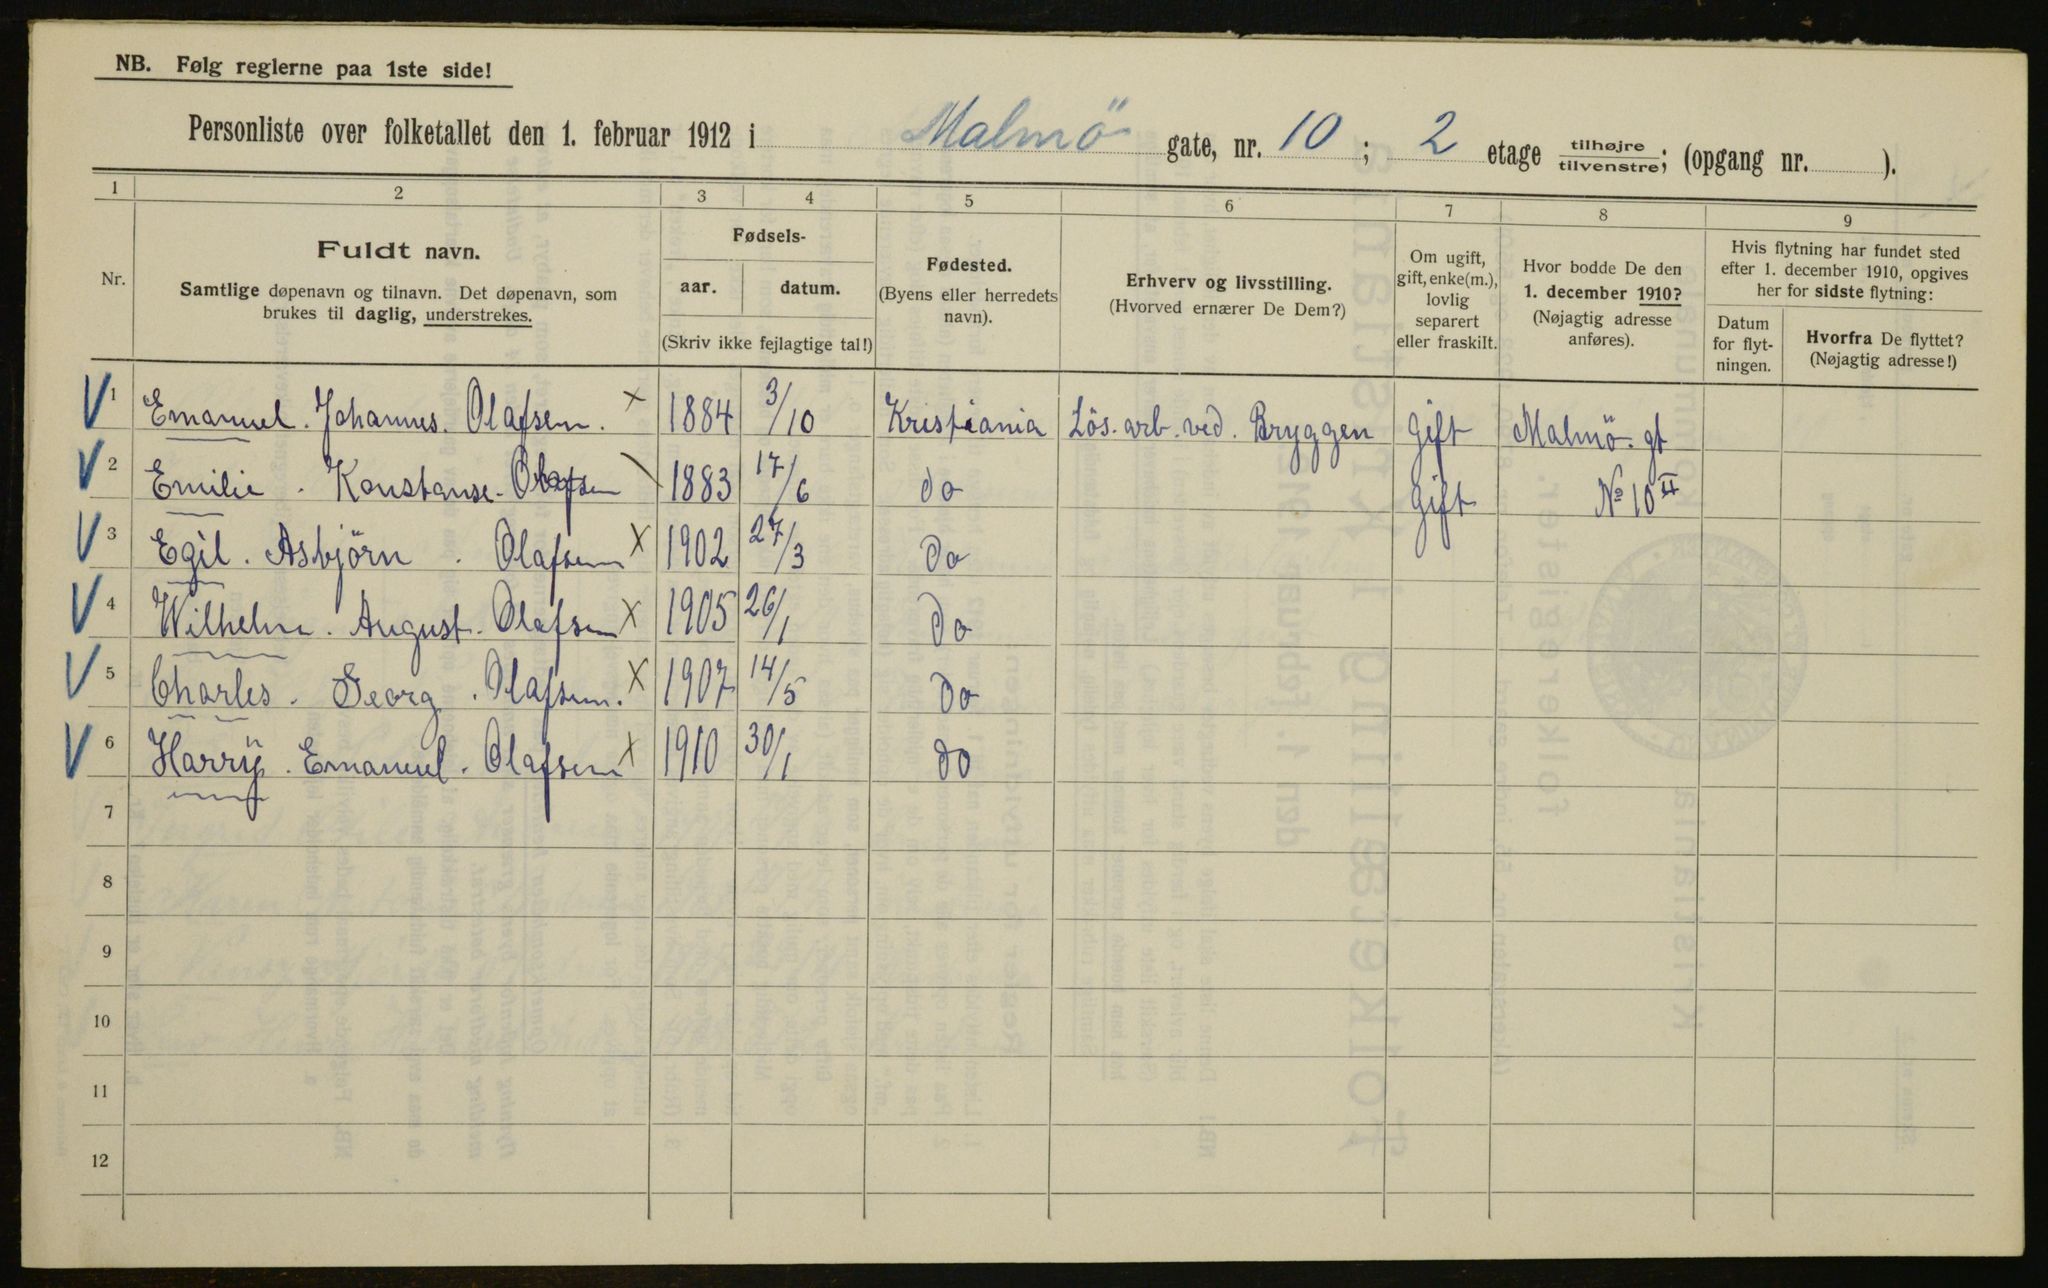 NB. Følg reglerne paa 1ste side!
Personliste over folketallet den 1. februar 1912 i Malmö gate, nr. 10; 2 etage tilhøjre/tilvenstre; (opgang nr. ).
1 2 3 4 5 6 7 8 9
Nr.
Fuldt navn.
Samtlige døpenavn og tilnavn. Det døpenavn, som
brukes til daglig, understrekes.
Fødsels-
aar. datum.
(Skriv ikke fejlagtige tal!)
Fødested.
(Byens eller herredets
navn).
Erhverv og livsstilling.
(Hvorved ernærer De Dem?)
Om ugift,
gift, enke(m.),
lovlig
separert
eller fraskilt.
Hvor bodde De den
1. december 1910?
(Nøjagtig adresse
anføres).
Hvis flytning har fundet sted
efter 1. december 1910, opgives
her for sidste flytning:
Datum
for flyt-
ningen.
Hvorfra De flyttet?
(Nøjagtig adresse!)
V 1 Emanuel. Johannes. Olafsen. x 1884 3/10 Kristiania Lös. arb. ved. Bryggen Gift Malmö. gt
V 2 Emilie. Konstanse. Olafsen \ 1883 17/6 do Gift № 10 II
V 3 Egil. Asbjörn. Olafsen x 1902 27/3 do
V 4 Wilhelm. August. Olafsen x 1905 26/1 do
V 5 Charles. Georg. Olafsen. x 1907 14/5 do
V 6 Harry. Emanuel. Olafsen x 1910 30/1 do
7
8
9
10
11
12